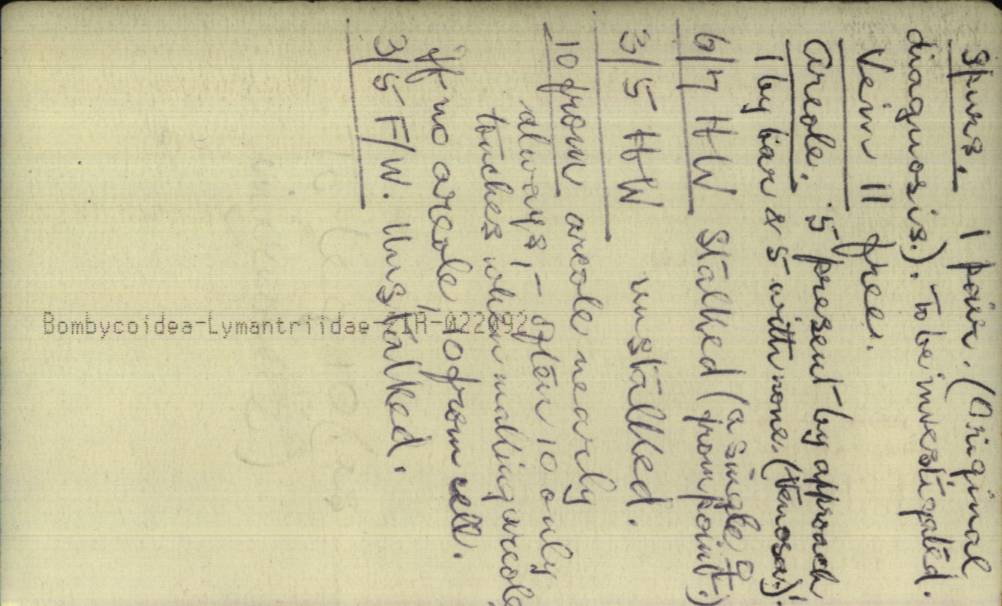 Spurs. 1 pair. (Original
diagnosis.). To be investigated.
Vein 11 free.
Areole. 5 present by approach
1 by bar & 5 with none. (Venosa.)
6/7 HW Stalked (a single ♀
from point.)
3/5 HW unstalked.
10 from areole nearly
always; - often 10 only
touches when making areole
If no areole, 10 from cell.
3/5 F/W. Unstalked.
Bombycoidea-Lymantriidae-